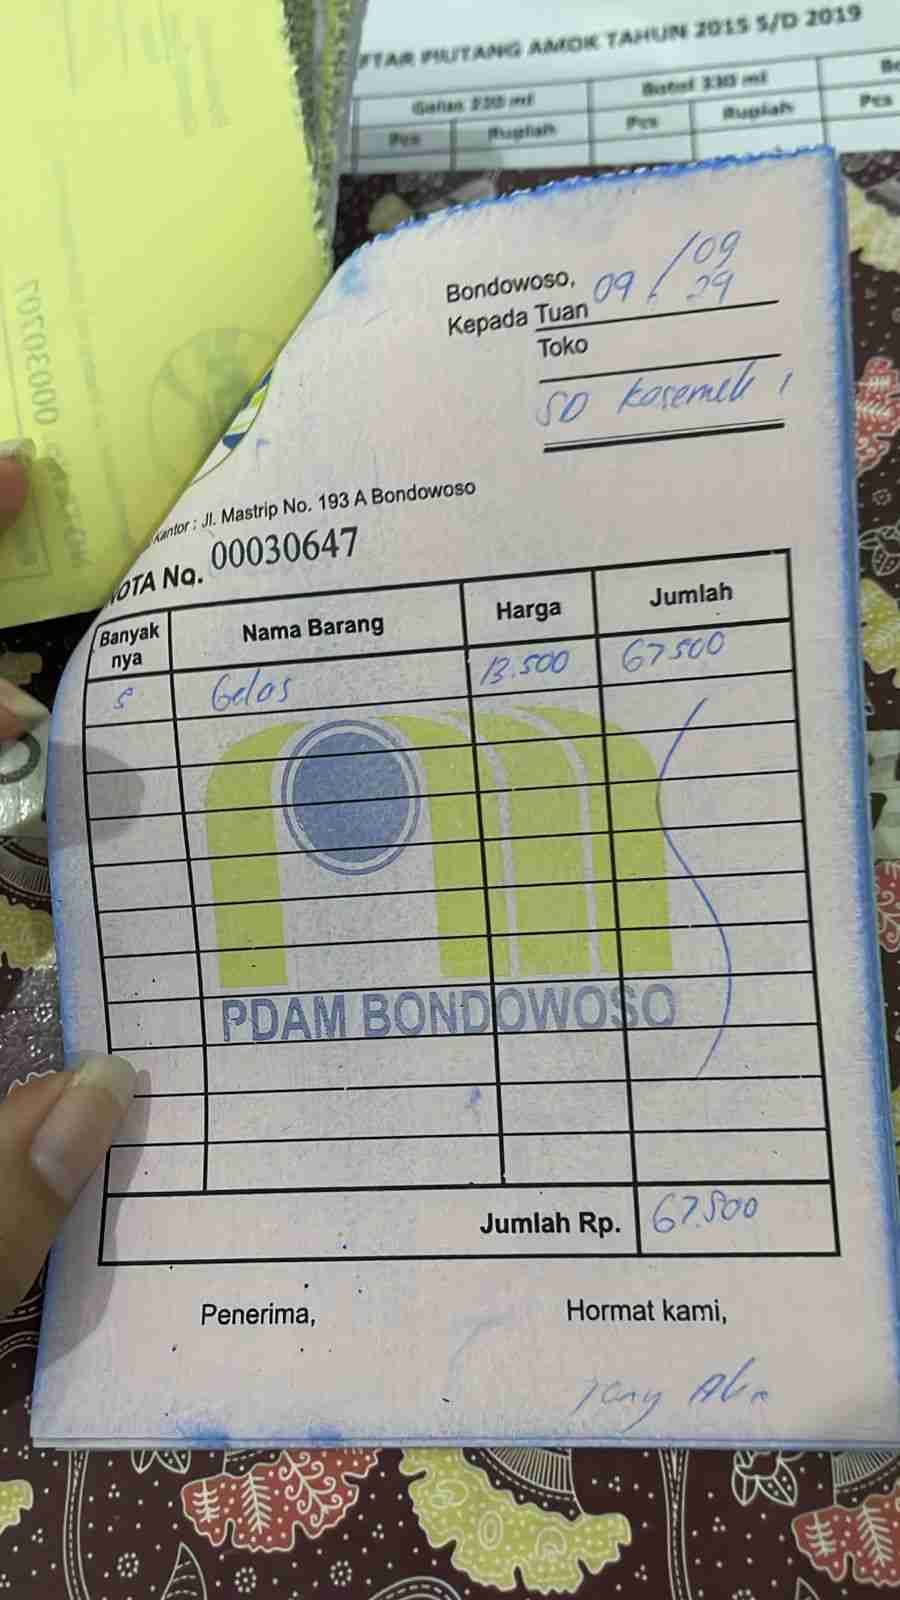 FTAR PIUTANG AMDK TAHUN 2015 S/D 2019
Gelas 220 ml Botol 330 ml Bo
Pcs Rupiah Pcs Rupiah Pcs
0003070
Bondowoso, 09/09
Kepada Tuan
Toko
SD Kasemek 1
Kantor : Jl. Mastrip No. 193 A Bondowoso
NOTA No. 00030647
Banyak nya Nama Barang Harga Jumlah
5 Gelas 13.500 67500
PDAM BONDOWOSO
Jumlah Rp. 67.500
Penerima, Hormat kami,